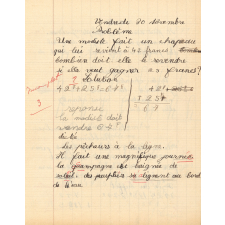 Vendredi 20 Décembre
Problème
Une modiste fait un chapeau
qui lui revient à 42 francs
combien doit elle le revendre
si elle veut gagner 25 francs?
Solution
42f+25f=67f
42f
+ 25f
67
réponse
la modiste doit
vendre 67f
dictée
Les pêcheurs à la ligne.
Il fait une magnifique journée
la campagne est baignée de
soleil, des peupliers s'alignent au bord
de l'eau
3